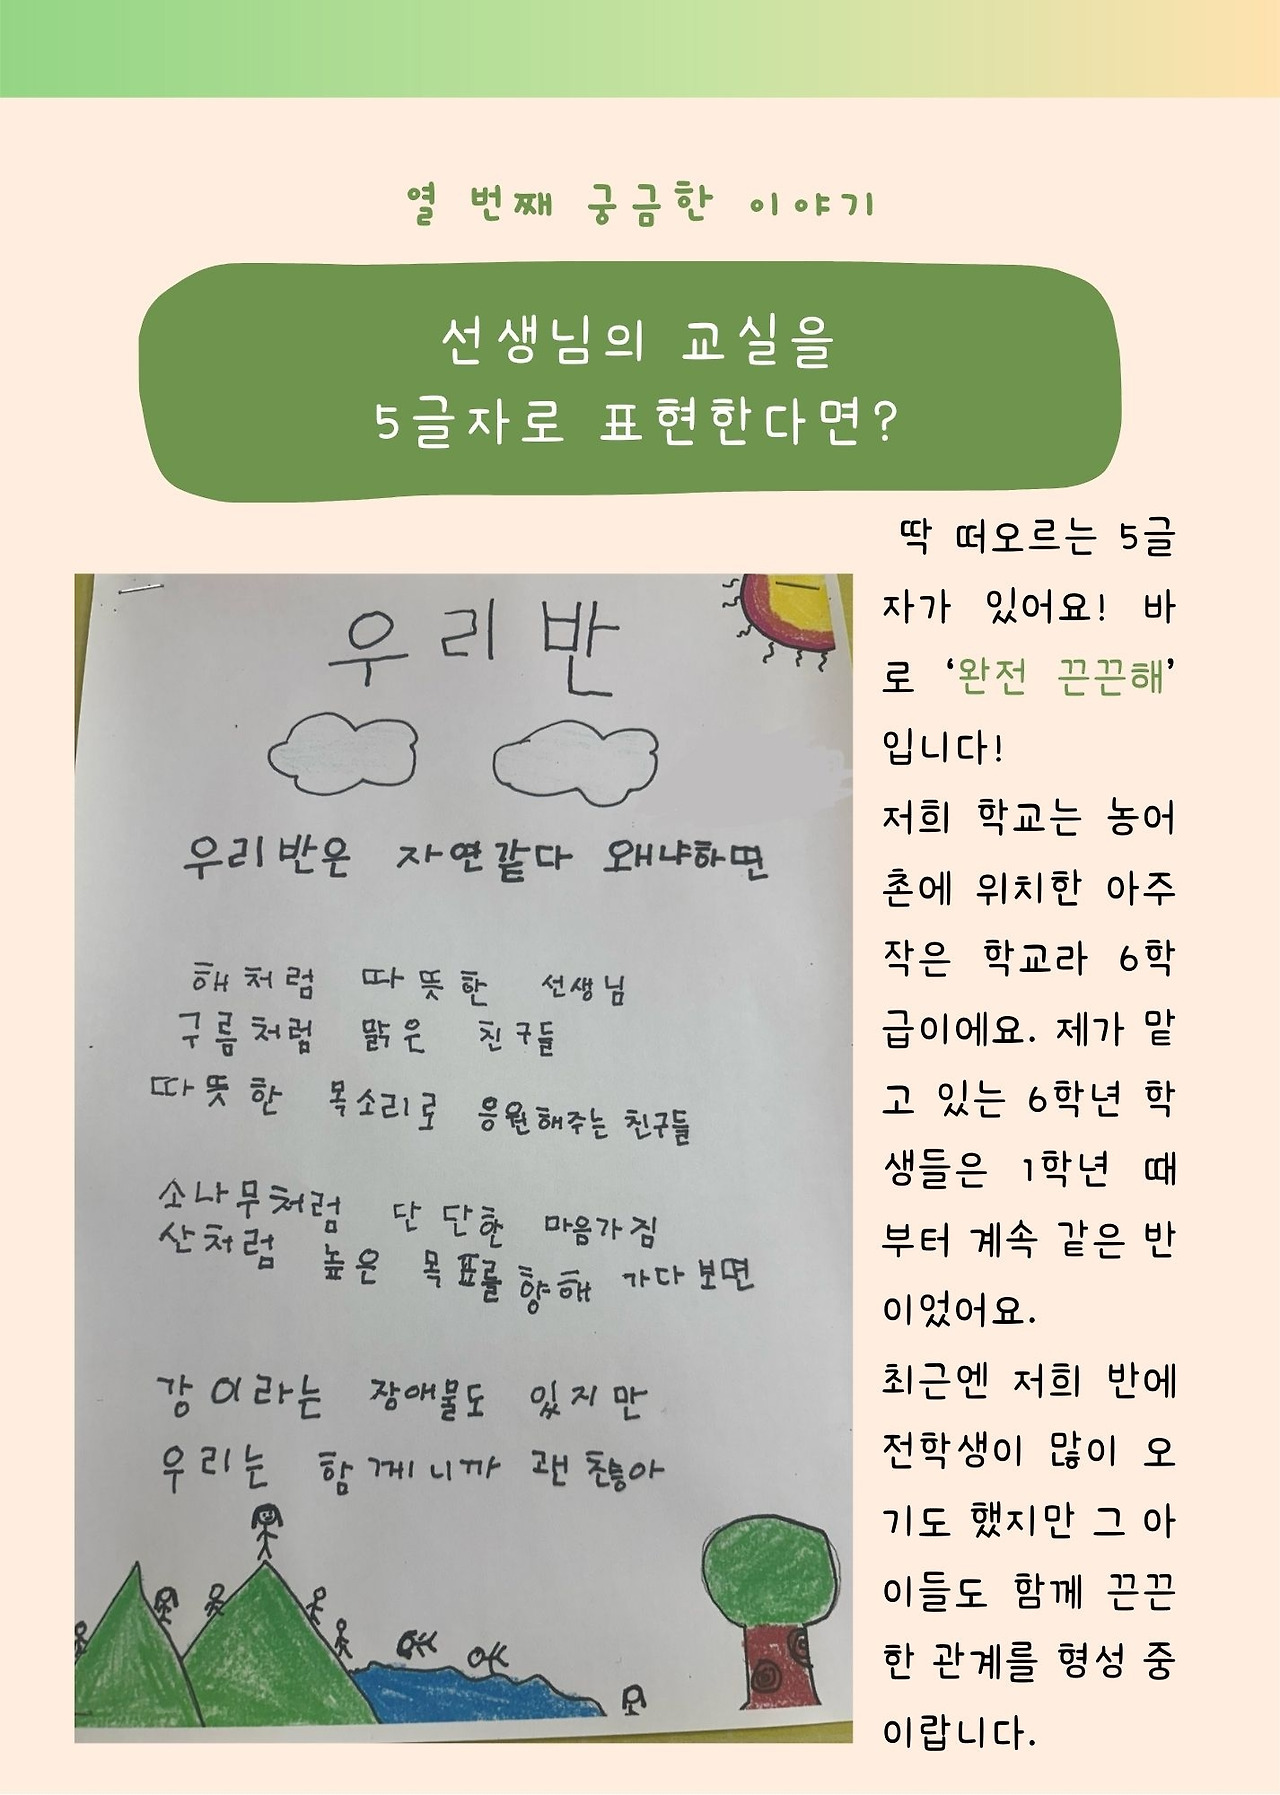 열 번째 궁금한 이야기
선생님의 교실을
5글자로 표현한다면?
우리반
우리반은 자연같다 왜냐하면
해처럼 따뜻한 선생님
구름처럼 맑은 친구들
따뜻한 목소리로 응원해주는 친구들
소나무처럼 단단한 마음가짐
산처럼 높은 목표를 향해 가다보면
강이라는 장애물도 있지만
우리는 함께니까 괜찮아
딱 떠오르는 5글
자가 있어요! 바
로 ‘완전 끈끈해’
입니다!
저희 학교는 농어
촌에 위치한 아주
작은 학교라 6학
급이에요. 제가 맡
고 있는 6학년 학
생들은 1학년 때
부터 계속 같은 반
이었어요.
최근엔 저희 반에
전학생이 많이 오
기도 했지만 그 아
이들도 함께 끈끈
한 관계를 형성 중
이랍니다.